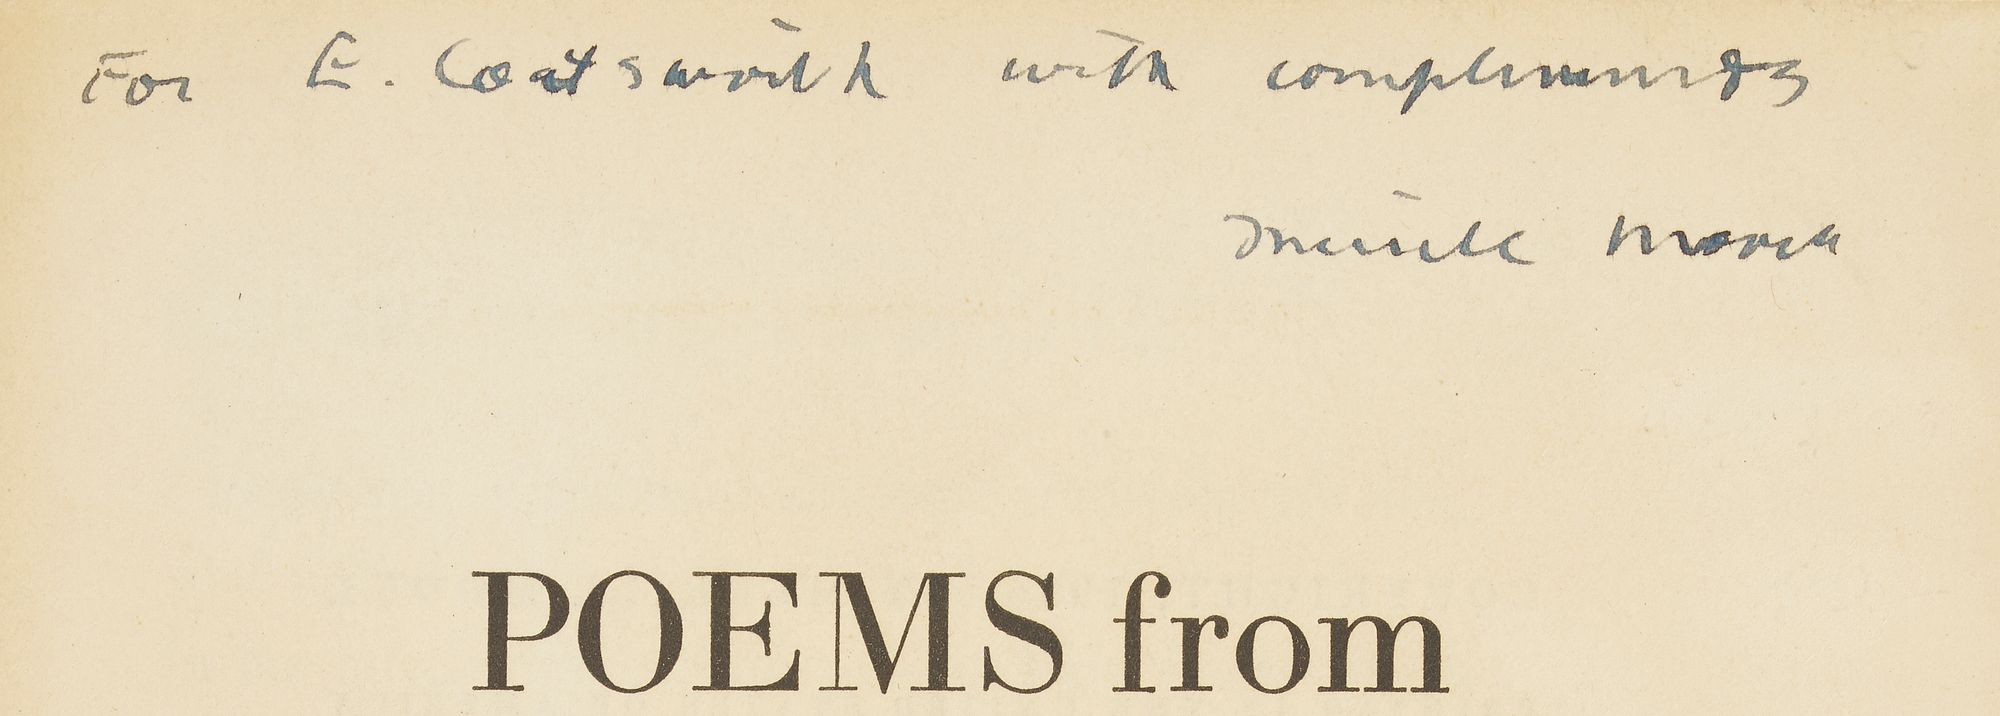 For E. Coatsworth with compliments
Merrill Moore
POEMS from